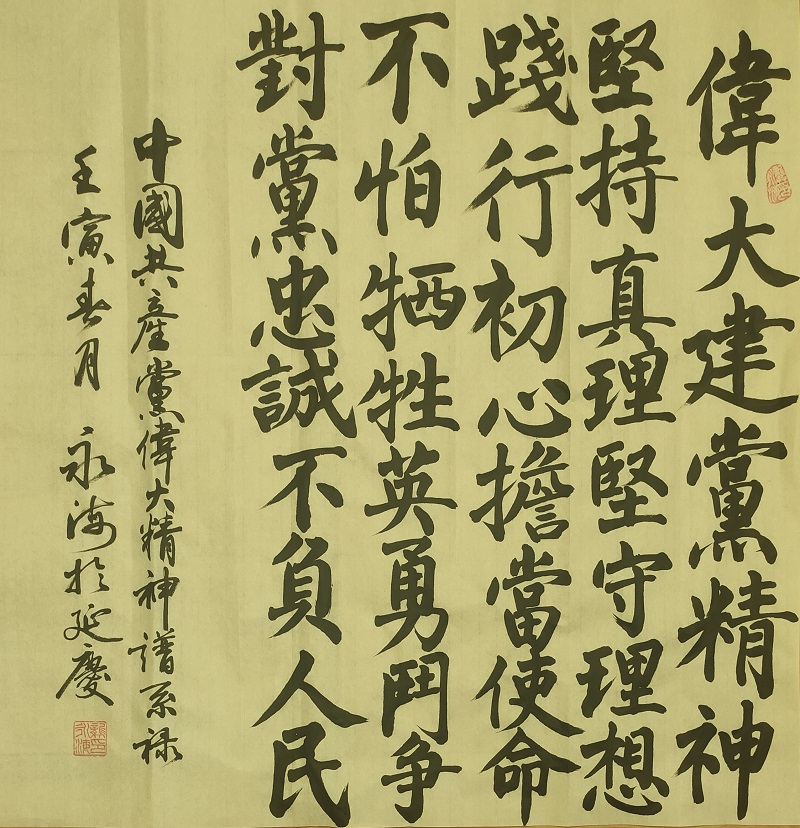 偉大建黨精神
堅持真理堅守理想
踐行初心擔當使命
不怕牺牲英勇鬥争
對黨忠誠不負人民
中國共產黨偉大精神譜系祿
壬寅春月 永海於延慶